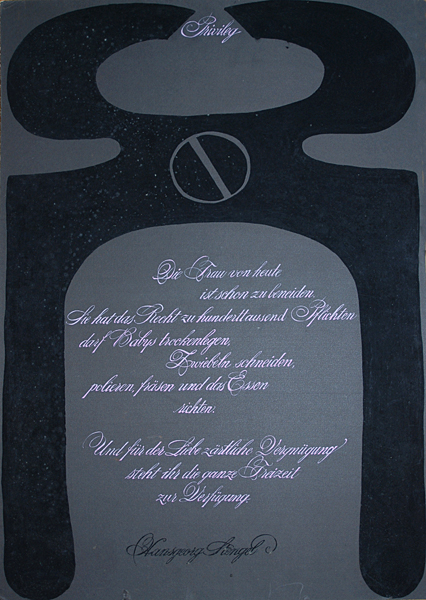 Privileg
Die Frau von heute
ist schon zu beneiden.
Sie hat das Recht zu hunderttausend Pflichten
darf Babys trockenlegen,
Zwiebeln schneiden,
polieren, fräsen und das Essen
richten.
Und für der Liebe zärtliche Vergnügung
steht ihr die ganze Freizeit
zur Verfügung.
Hansgeorg Stengel